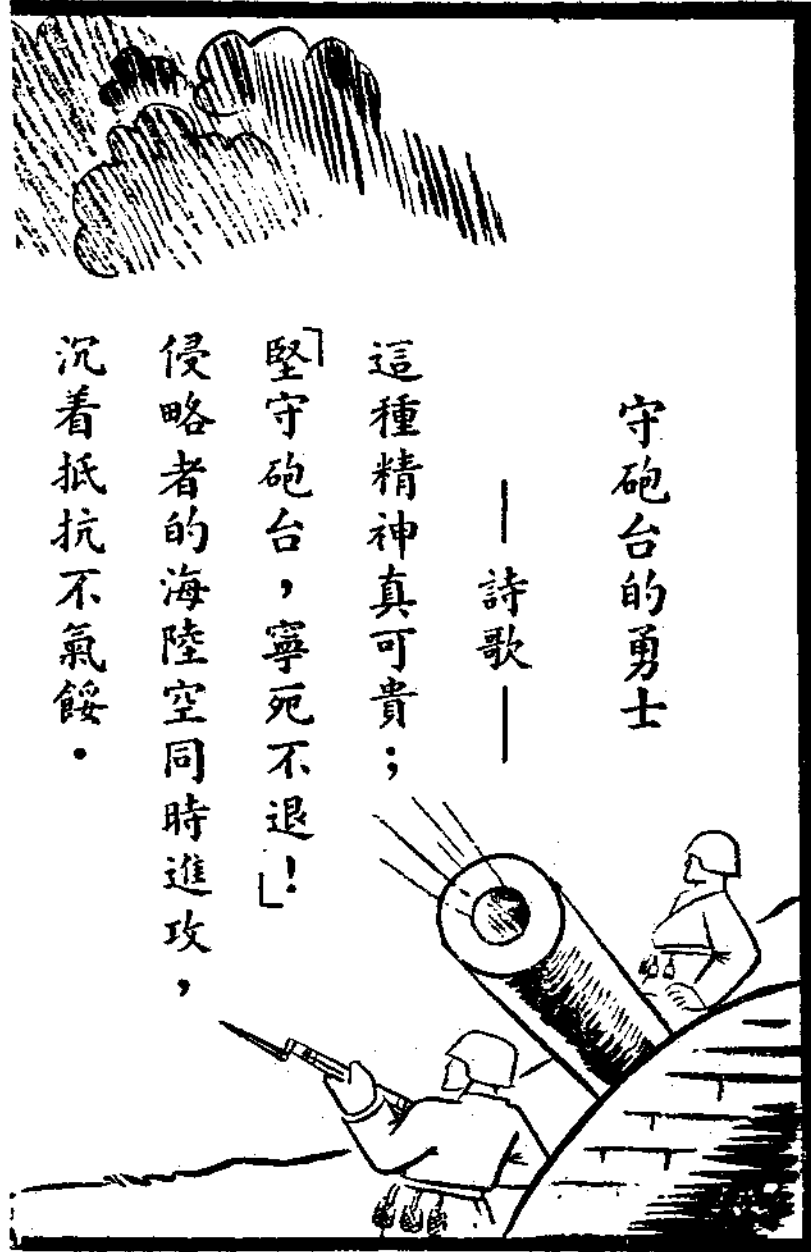 守砲台的勇士
——詩歌——
這種精神真可貴；
「堅守砲台，寧死不退！」
侵略者的海陸空同時進攻，
沉着抵抗不氣餒．